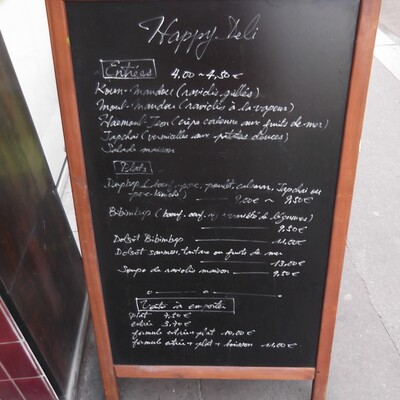 Happy Deli
Entrées 4,00 ~ 4,50 €
Koun-Mandou (raviolis grillés)
Moul-Mandou (raviolis à la vapeur)
Haemoul-Jeon (crêpe coréenne aux fruits de mer)
Japchai (vermicelles aux patates douces)
Salade maison
Plats
(bœuf, porc, poulet, calamar, Japchai ou
porc kimchi) 9,00 ~ 9,50 €
Bibimbap (bœuf, œuf, variété de légumes)
9,50 €
Dolsot Bibimbap 11,00 €
Dolsot saumon, tartare ou fruits de mer
13,00 €
Soupe de raviolis maison 9,50 €
Vente à emporter
plat 7,50 €
entrée 3,70 €
formule entrée + plat 10,00 €
formule entrée + plat + boisson 11,00 €